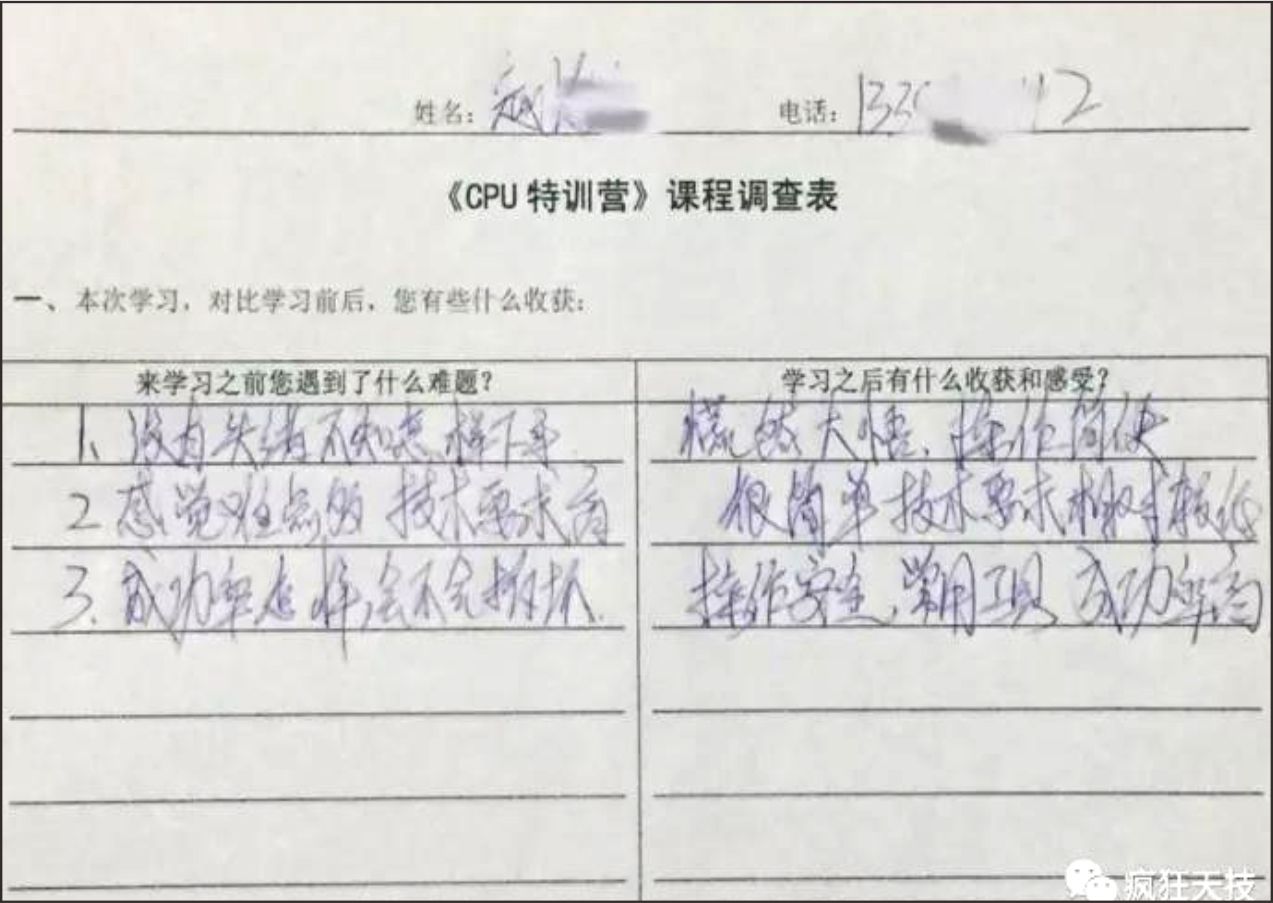 姓名:
电话: 2
《CPU 特训营》课程调查表
一、本次学习，对比学习前后，您有些什么收获:
来学习之前您遇到了什么难题？ 学习之后有什么收获和感受？
1、没有头绪不知怎样下手. 慌然大悟、操作简便
2 感觉难点多 技术要求高 很简单技术要求相对较低
3. 成功率怎样,会不会搞坏. 操作安全,常用工具 成功率高
疯狂天技